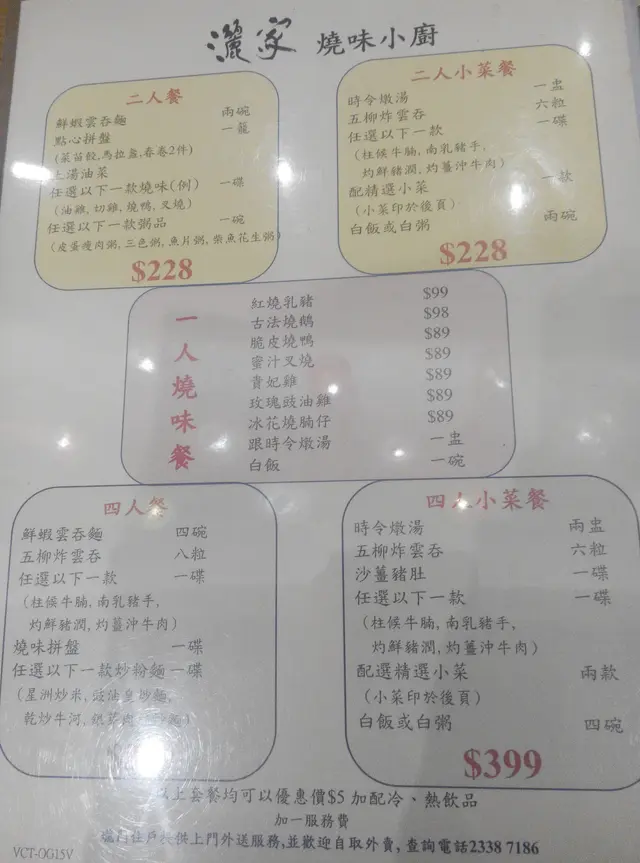 灑家 燒味小廚
二人餐
鮮蝦雲吞麵 兩碗
點心拼盤 一籠
(菜苗餃,馬拉盞,春卷2件)
上湯油菜
任選以下一款燒味(例) 一碟
(油雞,切雞,燒鴨,叉燒)
任選以下一款粥品 一碗
(皮蛋瘦肉粥,三色粥,魚片粥,柴魚花生粥)
$228
二人小菜餐
時令燉湯 一盅
五柳炸雲吞 六粒
任選以下一款 一碟
(柱侯牛腩,南乳豬手,
灼鮮豬潤,灼薑沖牛肉)
配精選小菜 一款
(小菜印於後頁)
白飯或白粥 兩碗
$228
一人燒味餐
紅燒乳豬 $99
古法燒鵝 $98
脆皮燒鴨 $89
蜜汁叉燒 $89
貴妃雞 $89
玫瑰豉油雞 $89
冰花燒腩仔 $89
跟時令燉湯 一盅
白飯 一碗
四人餐
鮮蝦雲吞麵 四碗
五柳炸雲吞 八粒
任選以下一款 一碟
(柱侯牛腩,南乳豬手,
灼鮮豬潤,灼薑沖牛肉)
燒味拼盤 一碟
任選以下一款炒粉麵 一碟
(星洲炒米,豉油皇炒麵,
乾炒牛河,銀芽肉
四人小菜餐
時令燉湯 兩盅
五柳炸雲吞 六粒
沙薑豬肚 一碟
任選以下一款 一碟
(柱侯牛腩,南乳豬手,
灼鮮豬潤,灼薑沖牛肉)
配選精選小菜 兩款
(小菜印於後頁)
白飯或白粥 四碗
$399
以上套餐均可以優惠價$5 加配冷、熱飲品
加一服務費
住戶提供上門外送服務,並歡迎自取外賣, 查詢電話2338 7186
VCT-OG15V